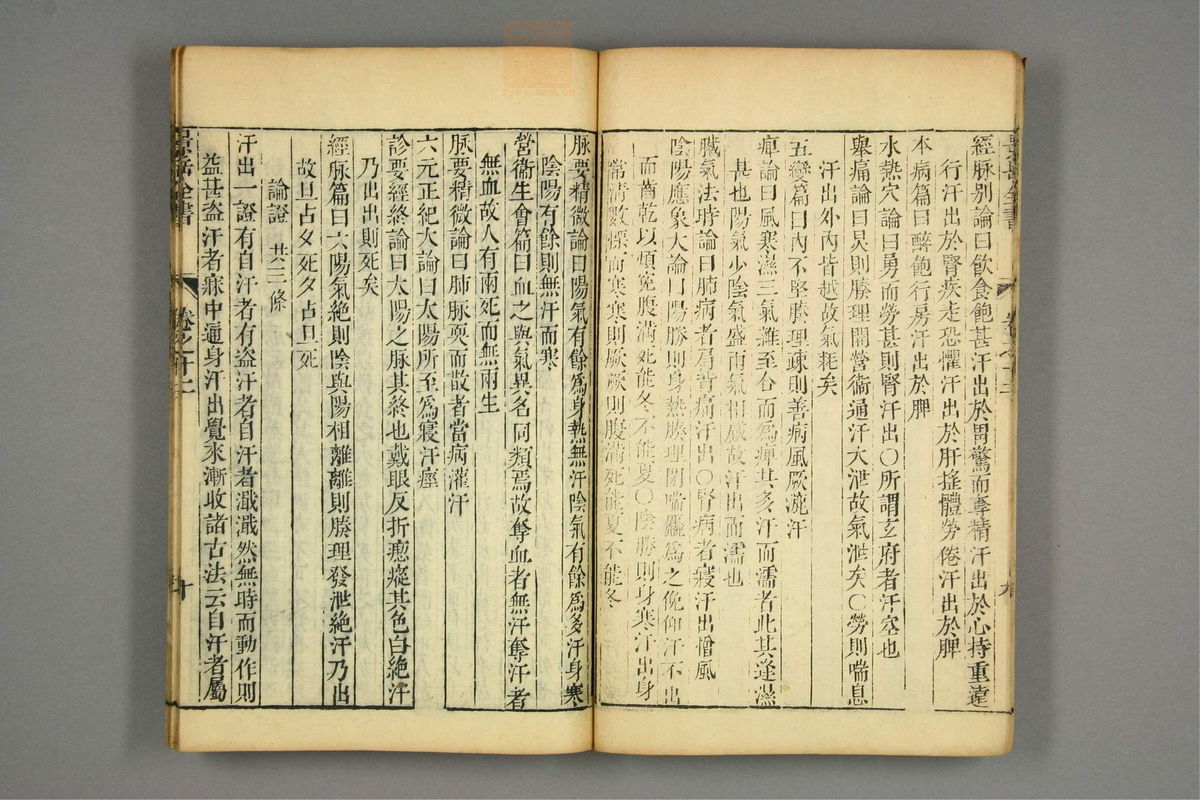 景岳全書
經脉別論曰飲食飽甚汗出於胃驚而奪精汗出於心持重遠
行汗出於腎疾走恐懼汗出於肝搖體勞倦汗出於脾
本病篇曰醉飽行房汗出於脾
水熱穴論曰勇而勞甚則腎汗出○所謂玄府者汗空也
舉痛論曰炅則腠理開營衛通汗大泄故氣泄矣○勞則喘息
汗出外內皆越故氣耗矣
五變篇曰肉不堅腠理疎則善病風厥漉汗
痺論曰風寒濕三氣雜至合而爲痺其多汗而濡者此其逢濕
甚也陽氣少陰氣盛兩氣相感故汗出而濡也
臟氣法時論曰肺病者肩背痛汗出○腎病者寢汗出憎風
陰陽應象大論曰陽勝則身熱腠理閉喘麤爲之俛仰汗不出
而齒乾以煩寃腹滿死能冬不能夏○陰勝則身寒汗出身
常清數慄而寒寒則厥厥則腹滿死能夏不能冬
脉要精微論曰陽氣有餘爲身熱無汗陰氣有餘爲多汗身寒
陰陽有餘則無汗而寒
營衛生會篇曰血之與氣異名同類焉故奪血者無汗奪汗者
無血故人有兩死而無兩生
脉要精微論曰肺脉耎而散者當病灌汗
六元正紀大論曰太陽所至爲寢汗痙
診要經終論曰太陽之脉其終也戴眼反折瘛瘲其色白絶汗
乃出出則死矣
經脉篇曰六陽氣絶則陰與陽相離離則腠理發泄絶汗乃出
故旦占夕死夕占旦死
論證 共三條
汗出一證有自汗者有盜汗者自汗者濈濈然無時而動作則
益甚盜汗者寐中遍身汗出覺來漸收諸古法云自汗者屬
景岳全書
卷之十二
十